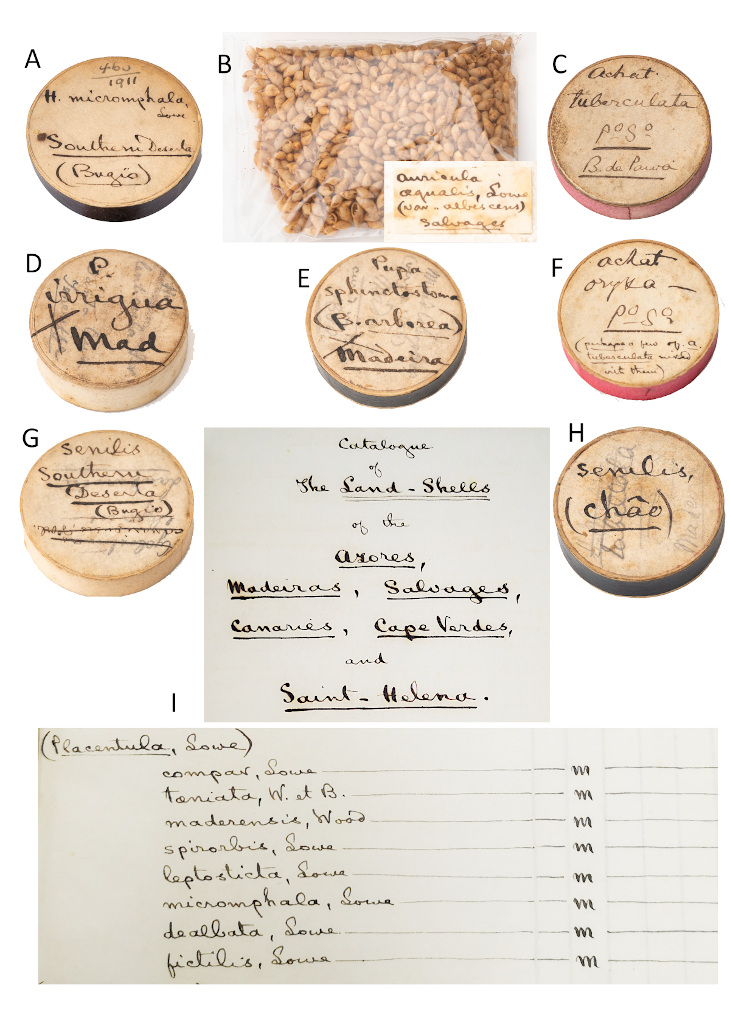 A
460
1911
H. micromphala,
Lowe
Southern Deserta
(Bugio)
B
auricula
aequalis, Lowe
(var. albescens)
Salvages
C
Achat.
tuberculata
Po So
B. de Pauvá
D
P.
irrigua
Mad
E
Pupa
sphinctostoma
(B. arborea)
Madeira
F
achat
oryza —
Po So
(perhaps a few of a.
tuberculata mixed
with them)
G
senilis
Southern
Deserta
(Bugio)
H
senilis,
(Chão)
I
Catalogue
of
The Land-Shells
of the
Azores,
Madeiras, Salvages,
Canaries, Cape Verdes,
and
Saint-Helena.
(Placentula, Lowe)
compar, Lowe m
tæniata, W. et B. m
maderensis, Wood m
spirorbis, Lowe m
leptosticta, Lowe m
micromphala, Lowe m
dealbata, Lowe m
fictilis, Lowe m